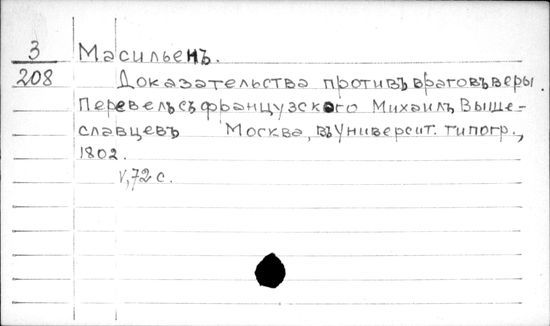 3 Масильенъ.
208 Доказательства противъ враговъ веры.
Перевелъ съ французского Михаилъ Выше-
славцевъ Москва, въ Университ. типогр.,
1802.
V, 72 с.